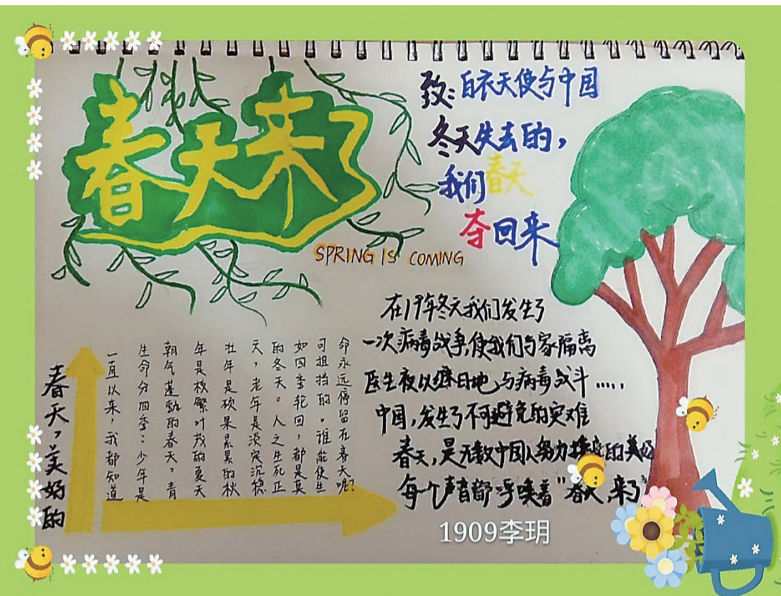 春天来了
SPRING IS COMING
致:白衣天使与中国
冬天失去的,
我们春天
夺回来
在19年冬天我们发生了
一次病毒战争,使我们与家隔离
医生夜以继日地与病毒战斗.....
中国,发生了不可避免的灾难
春天,是无数中国人努力换的美好
每个声音都呼唤着"春天来了"
春天,美好的
一直以来,我都知道
生命分四季:少年是
朝气蓬勃的春天,青
年是枝繁叶茂的夏天
壮年是硕果累累的秋
天,老年是淡沉稳
的冬天。人之生死正
如四季轮回,都是莫
可阻挡的。谁能使生
命永远停留在春天呢?
1909李玥